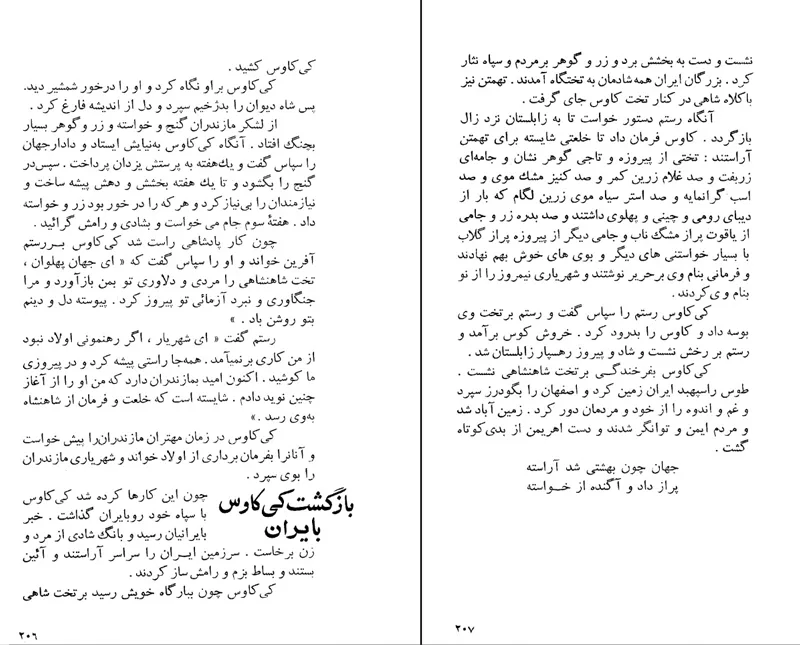 کی‌کاوس کشید .
کی‌کاوس براو نگاه کرد و او را درخور شمشیر دید.
پس شاه دیوان را بدژخیم سپرد و دل از اندیشه فارغ کرد .
از لشکر مازندران گنج و خواسته و زر و گوهر بسیار
بچنگ افتاد . آنگاه کی‌کاوس به‌نیایش ایستاد و دادارجهان
را سپاس گفت و یك‌هفته به پرستش یزدان پرداخت . سپس‌در
گنج را بگشود و تا یك هفته بخشش و دهش پیشه ساخت و
نیازمندان را بی‌نیازکرد و هرکه را در خور بود زر و خواسته
داد . هفتهٔ سوم جام می خواست و بشادی و رامش گرائید .
چون کار پادشاهی راست شد کی‌کاوس بــررستم
آفرین خواند و او را سپاس گفت که « ای جهان پهلوان ،
تخت شاهنشاهی را مردی و دلاوری تو بمن بازآورد و مرا
جنگاوری و نبرد آزمائی تو پیروز کرد . پیوسته دل و دینم
بتو روشن باد . »
رستم گفت « ای شهریار ، اگر رهنمونی اولاد نبود
از من کاری برنمیآمد . همه‌جا راستی پیشه کرد و در پیروزی
ما کوشید . اکنون امید بمازندران دارد که من او را از آغاز
چنین نوید دادم . شایسته است که خلعت و فرمان از شاهنشاه
به‌وی رسد .»
کی‌کاوس در زمان مهتران مازندران‌را پیش خواست
و آنانرا بفرمان برداری از اولاد خواند و شهریاری مازندران
را بوی سپرد .
بازگشت کی‌کاوس
بایران
چون این کارها کرده شد کی‌کاوس
با سپاه خود روبایران گذاشت . خبر
بایرانیان رسید و بانگ شادی از مرد و
زن برخاست . سرزمین ایــران را سراسر آراستند و آئین
بستند و بساط بزم و رامش ساز کردند .
کی‌کاوس چون ببارگاه خویش رسید برتخت شاهی
۲۰۶
نشست و دست به بخشش برد و زر و گوهر برمردم و سپاه نثار
کرد . بزرگان ایران همه‌شادمان به تختگاه آمدند . تهمتن نیز
باکلاه شاهی در کنار تخت کاوس جای گرفت .
آنگاه رستم دستور خواست تا به زابلستان نزد زال
بازگردد . کاوس فرمان داد تا خلعتی شایسته برای تهمتن
آراستند : تختی از پیروزه و تاجی گوهر نشان و جامه‌ای
زربفت و صد غلام زرین کمر و صد کنیز مشك موی و صد
اسب گرانمایه و صد استر سیاه موی زرین لگام که بار از
دیبای رومی و چینی و پهلوی داشتند و صد بدره زر و جامی
از یاقوت پراز مشگ ناب و جامی دیگر از پیروزه پراز گلاب
با بسیار خواستنی های دیگر و بوی های خوش بهم نهادند
و فرمانی بنام وی برحریر نوشتند و شهریاری نیمروز را از نو
بنام وی‌کردند .
کی‌کاوس رستم را سپاس گفت و رستم برتخت وی
بوسه داد و کاوس را بدرود کرد . خروش کوس برآمد و
رستم بر رخش نشست و شاد و پیروز رهسپار زابلستان شد .
کی‌کاوس بفرخندگــی برتخت شاهنشاهی نشست .
طوس راسپهبد ایران زمین کرد و اصفهان را بگودرز سپرد
و غم و اندوه را از خود و مردمان دور کرد . زمین آباد شد
و مردم ایمن و توانگر شدند و دست اهریمن از بدی‌کوتاه
گشت .
جهان چون بهشتی شد آراسته
پراز داد و آگنده از خــواسته
۲۰۷